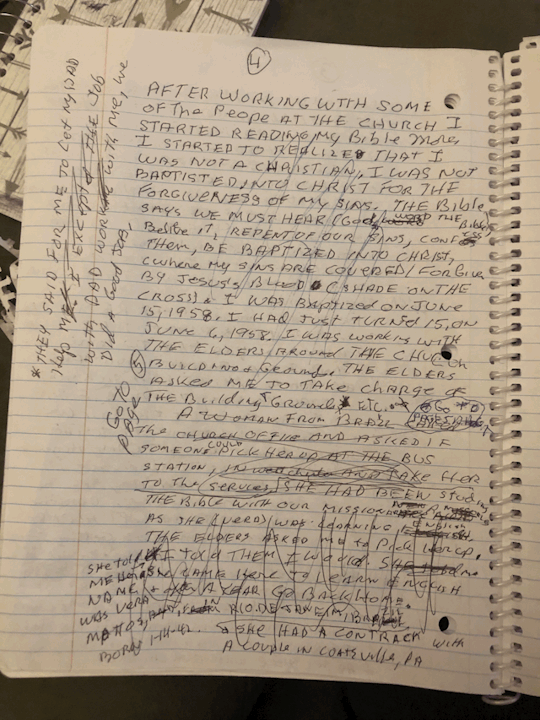 4
AFTER WORKING WITH SOME
OF The PeopE AT THE CHURCH I
STARTED READING My BiBle More,
I STARTED TO REALIZE THAT I
WAS NOT A CHRISTIAN, I WAS NOT
BAPTISTED, INTO CHRIST FOR THE
FORGIVENESS OF My SINS. THE BiBle
SAYS WE MUST HEAR (GOD, WORD THE Bible)
Believe it, REPENT OF OUR SINS, CONFESS
Them, BE BAPTIZED INTO CHRIST,
(where My SINS ARE COVERED/FORGIVEN
BY JESUS'S BLOOD (SHADE ON THE
CROSS) & I WAS BAPTIZED ON JUNE
15, 1958. I HAD JUST TURN'D 15, ON
JUNE 6, 1958. I WAS WORKIS WITH
THE ELDERS, AROUND THE CHUCH
5 BUILDING & GROUND. THE ELDERS
ASKED ME TO TAKE CHARGE OF
THE BUILDING & GROUNDS ETC. * GO TO
A WOMAN FROM BRAZIL
The CHURCH OFFICE AND ASKED IF
SOMEONE COULD PICK HER UP AT THE BUS
STATION, AND TAKE HER
TO THE (services) SHE HAD BEEN Studing
THE BIBLE WITH OUR MISSION
AS SHE (VERA) WAS LEARNING ENGLISH
THE ELDERS ASKED ME to Pick her up.
I TOLD THEM I WOULD. SHE told me
SHE CAME HERE TO LEARN ENGLISH
A YEAR GO BACK HOME.
RIO DE JANE
& SHE HAD A CONTRACK with
A COUPLE IN COATSVILLE, PA
* THEY SAID FOR ME TO Let My DAD
Help Me I EXCEPT THE JOB
with DAD WORK with ME, WE
DID A GOOD JOB.
GO TO
PAGE
SHE told
ME Her
NAME
WAS VERA
MATTOS,
BORN 1-14-42.